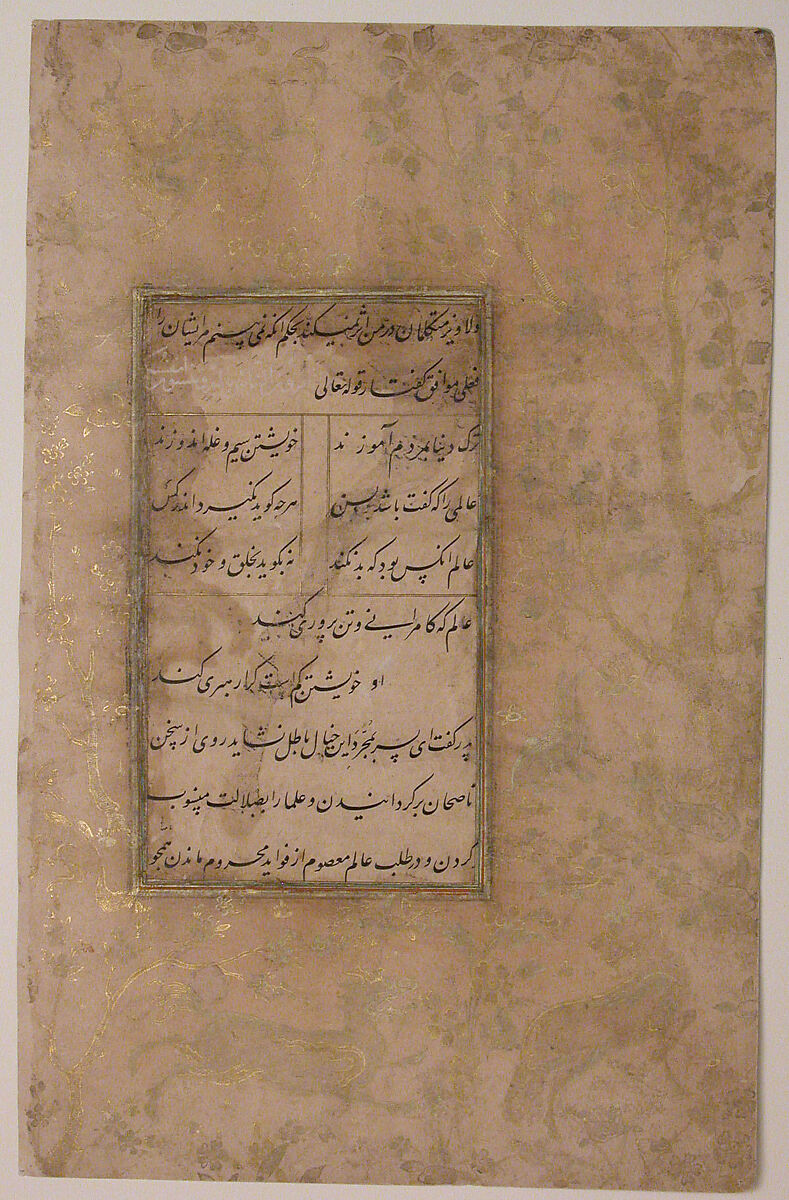 دلاویز متکلمان در من اثر نمیکند بحکم انکه نمی بینم مر ایشان را
فعلی موافق گفتار قوله تعالی
ترک دنیا بمردم آموزند خویشتن سیم و غله اندوزند
عالمی را که گفت باشد و بس هرچه گوید نگیرد اندر کس
عالم انکس بود که بد نکند نه بگوید بخلق و خود نکند
عالم که کامرانی و تن پروری کند
او خویشتن گم است کرا رهبری کند
پدر گفت ای پسر بمجرد این خیال باطل نشاید روی از سخن
ناصحان برگردانیدن و علما را بضلالت منسوب
کردن و در طلب عالم معصوم از فواید محروم ماندن همچو